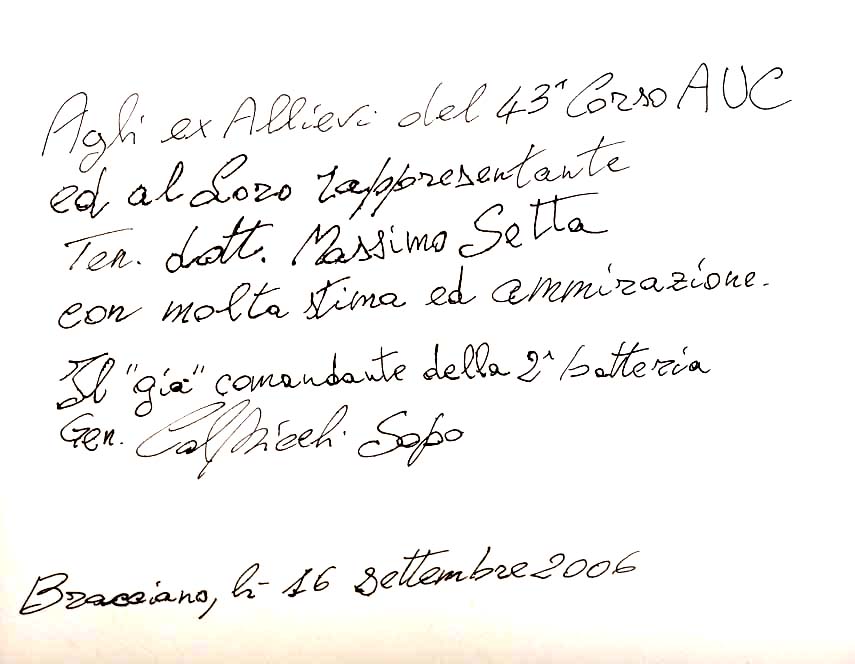 Agli ex Allievi del 43° Corso AUC
ed al Loro rappresentante
Ten. dott. Massimo Setta
con molta stima ed ammirazione.
Il "già" comandante della 2^ batteria
Gen. Sopo
Bracciano, lì 16 settembre 2006